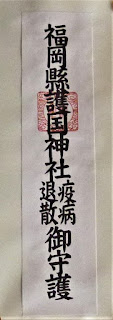 福岡縣護国神社疫病退散御守護